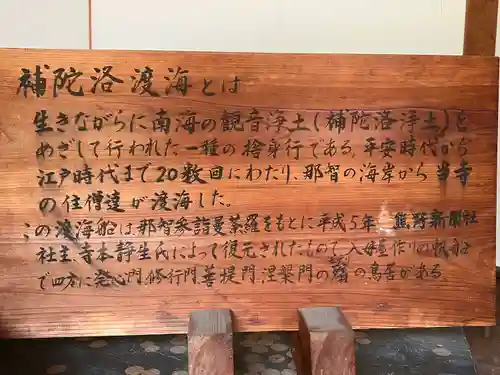 補陀洛渡海とは
生きながらに南海の観音浄土(補陀洛浄土)を
めざして行われた一種の捨身行である。平安時代から
江戸時代まで20数回にわたり、那智の海岸から当寺
の住僧達が渡海した。
この渡海船は那智参詣曼荼羅をもとに平成5年、熊野新聞社
社主、寺本静生氏によって復元されたもので、入母屋作りの帆船
で四方に発心門、修行門、菩提門、涅槃門の の鳥居がある。